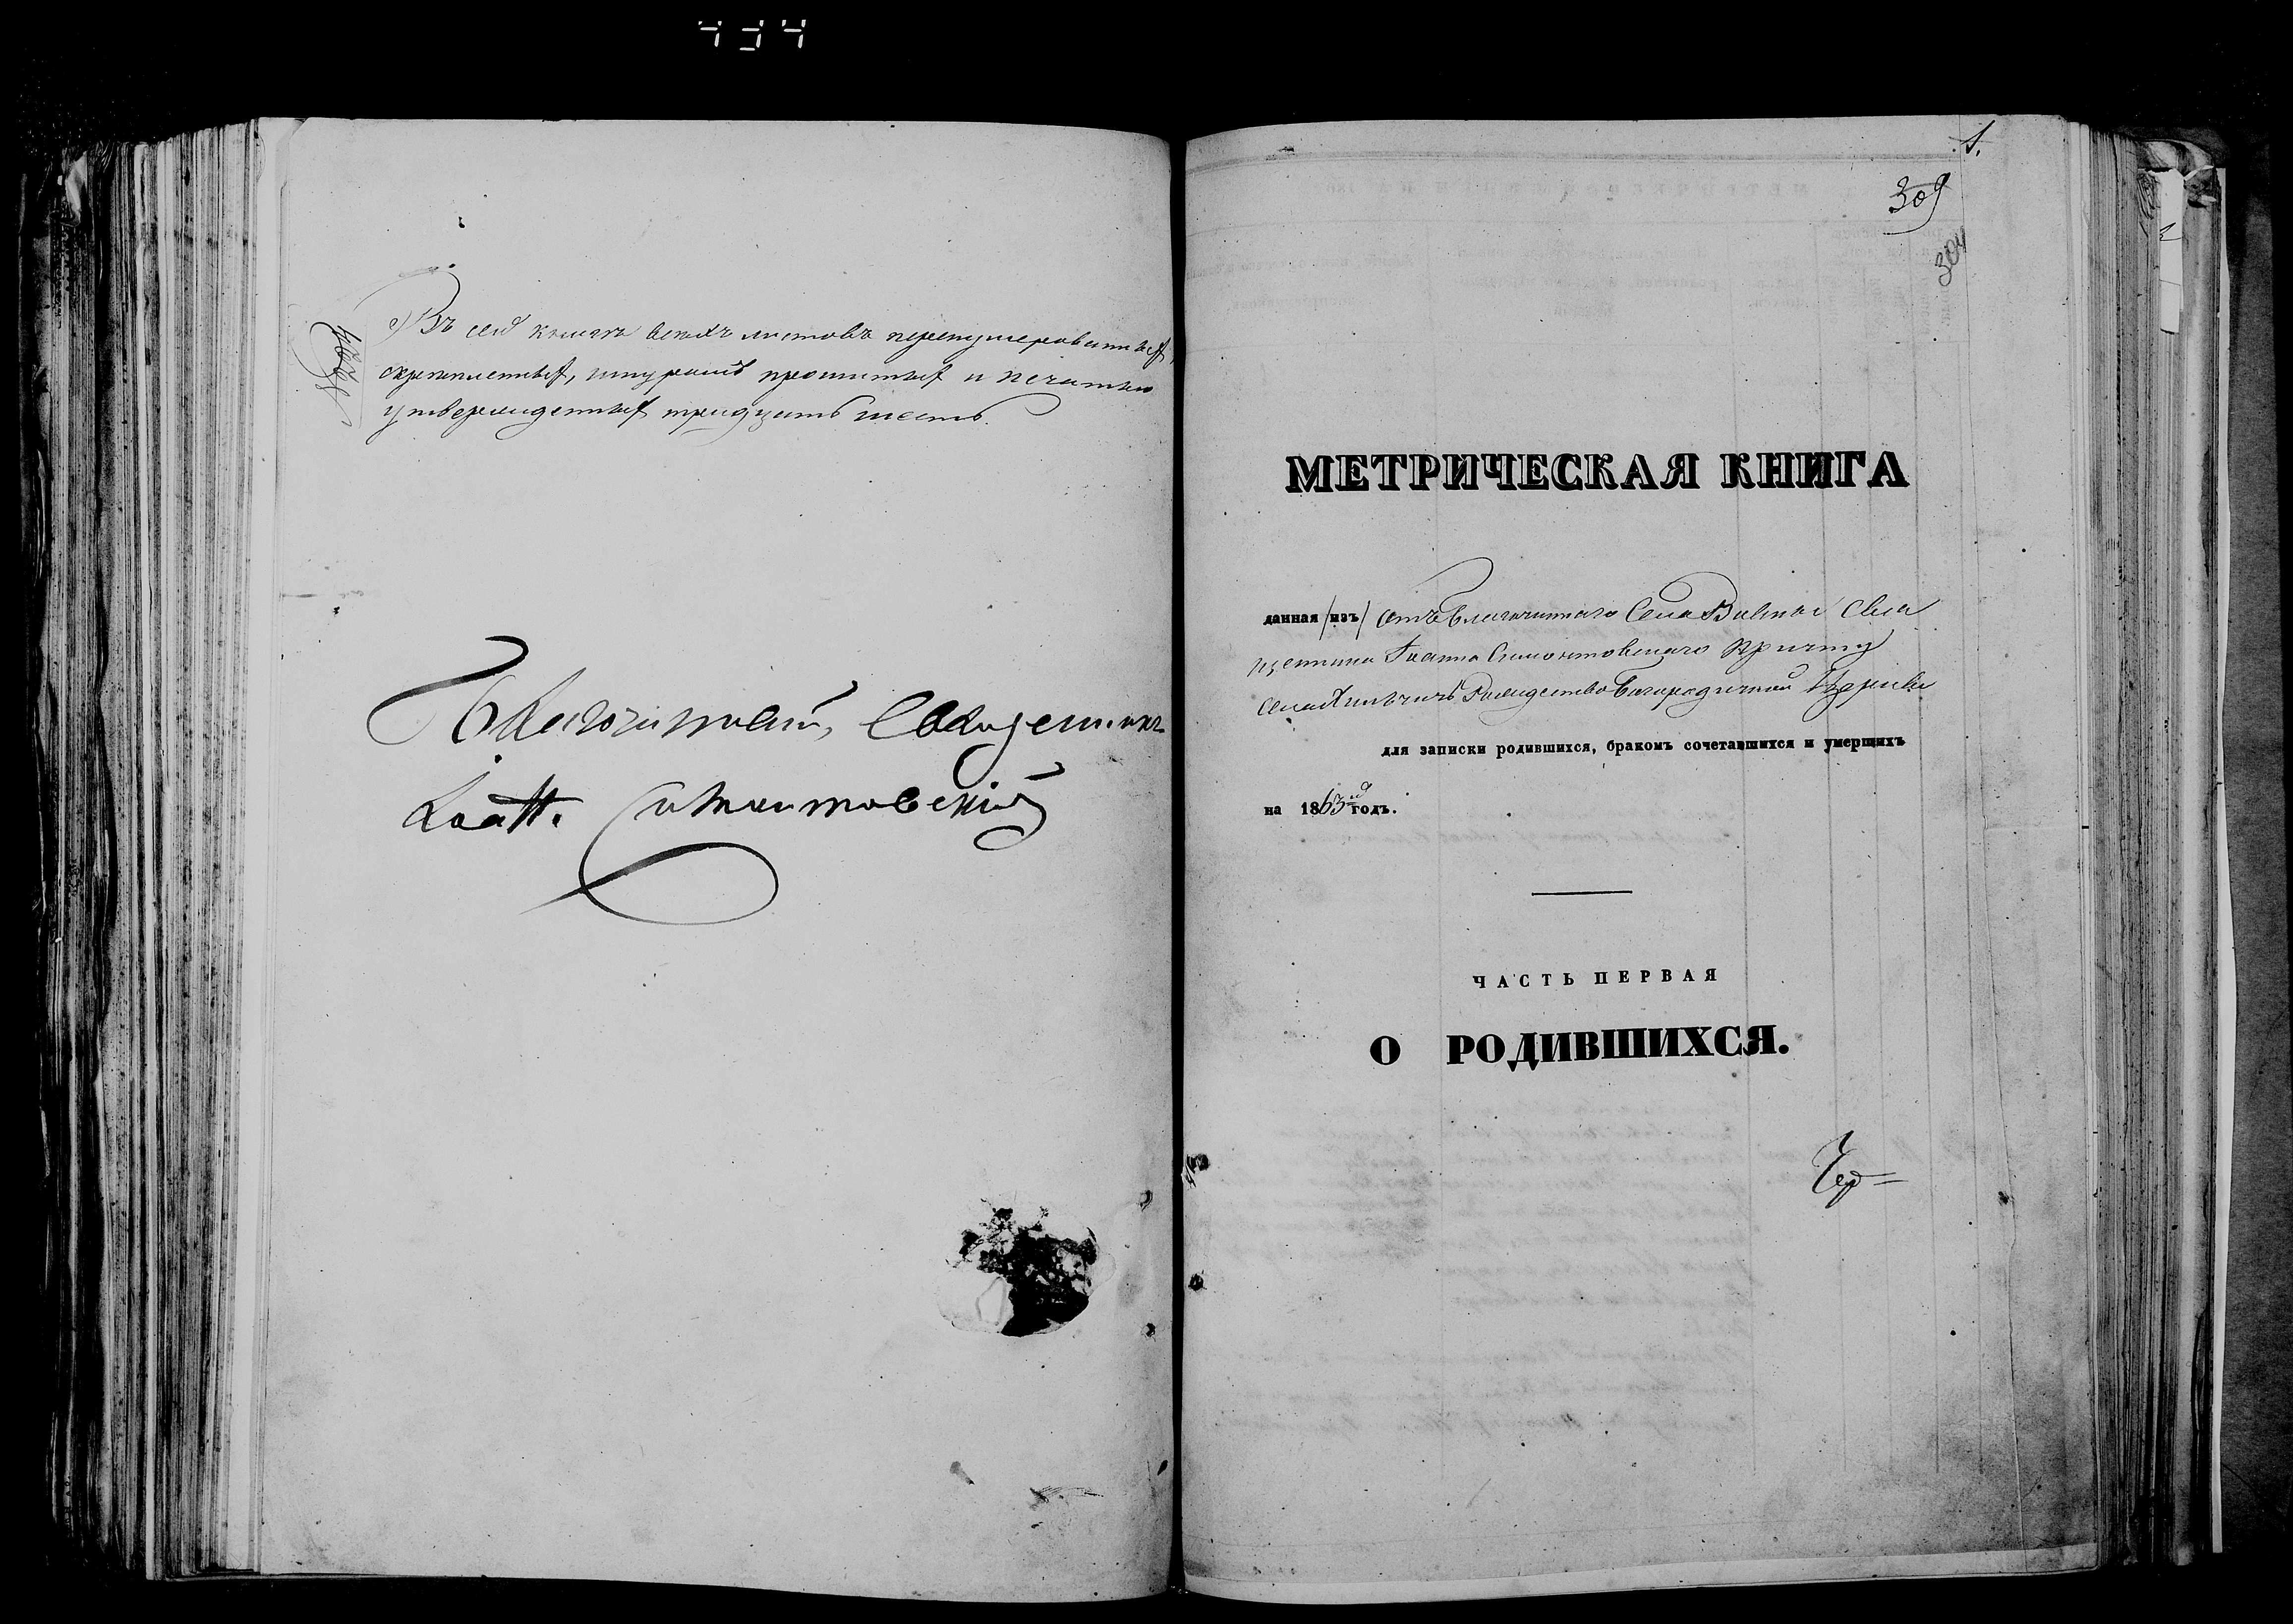 434
Въ сей книгѣ всѣхъ листовъ перенумерованныхъ,
скрѣпленныхъ, шнуромъ прошитыхъ и печатью
утвержденныхъ тридцать шесть.
Благочинный, Священникъ
Симонтовскій
1.
309
304
МЕТРИЧЕСКАЯ КНИГА
данная /изъ/ отъ Благочиннаго Села Свя
щенника Іоанна Симонтовскаго причту
села Рождество Богородичной Церкви
для записки родившихся, бракомъ сочетавшихся и умершихъ
на 1863й годъ.
ЧАСТЬ ПЕРВАЯ
О РОДИВШИХСЯ.